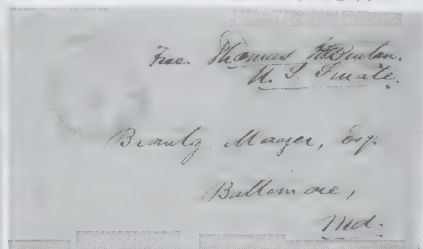 Free. Thomas H Benton.
U. S. Senate.
Brantz Mayer, Esq.
Baltimore,
Md.